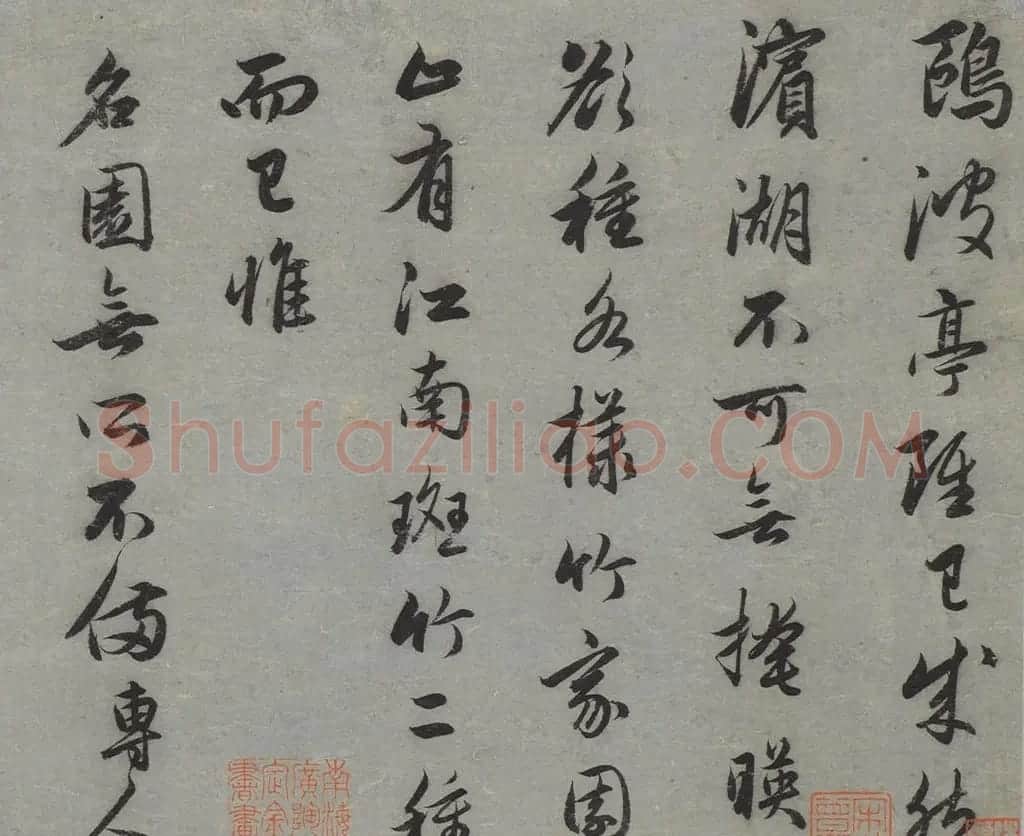 鷗波亭雖已成然
濱湖不可無掩暎
欲種各樣竹家園
止有江南斑竹二種
而已惟
名園無所不備專人
Shufaziliao.COM